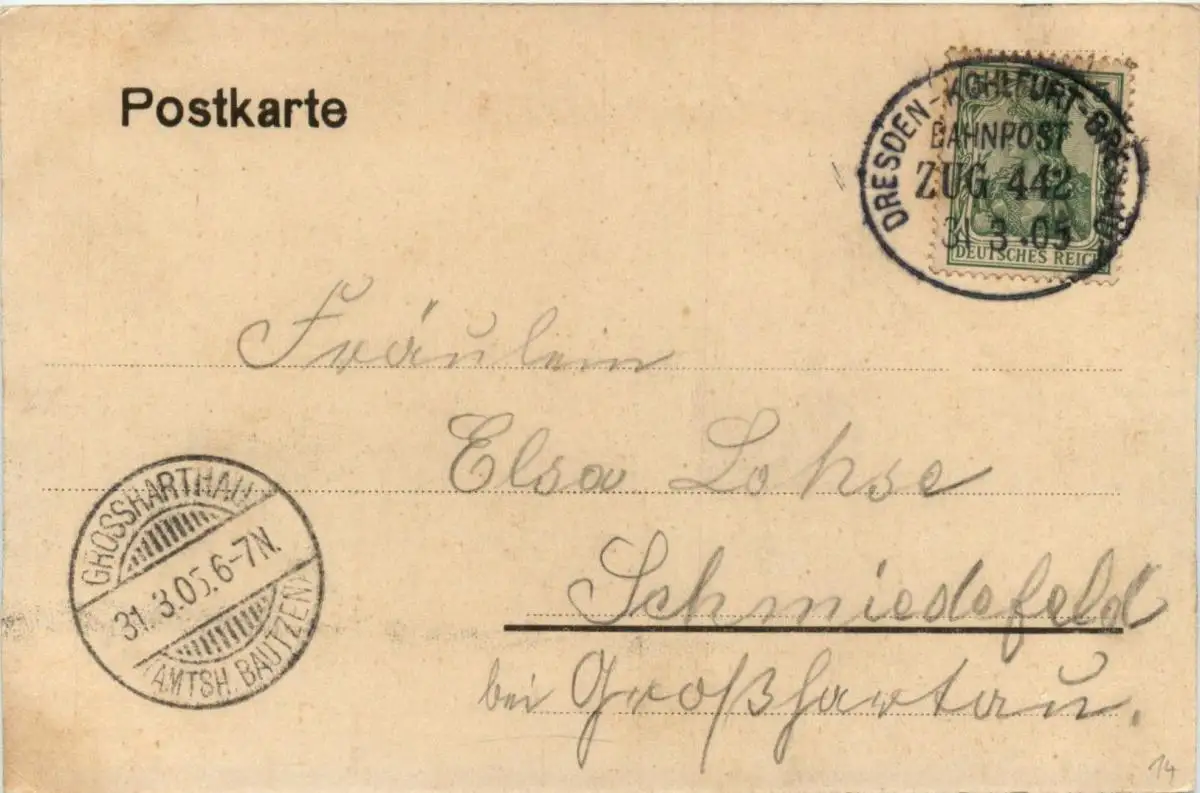 Postkarte
DRESDEN-KOHLFURT-BRESLAU
BAHNPOST
ZUG 442
31 3.05
5
DEUTSCHES REICH
Fräulein
Elsa Lohse
Schmiedefeld
bei Großhartau.
GROSSHARTHAU
31.3.05.6-7N.
(AMTSH. BAUTZEN)
14